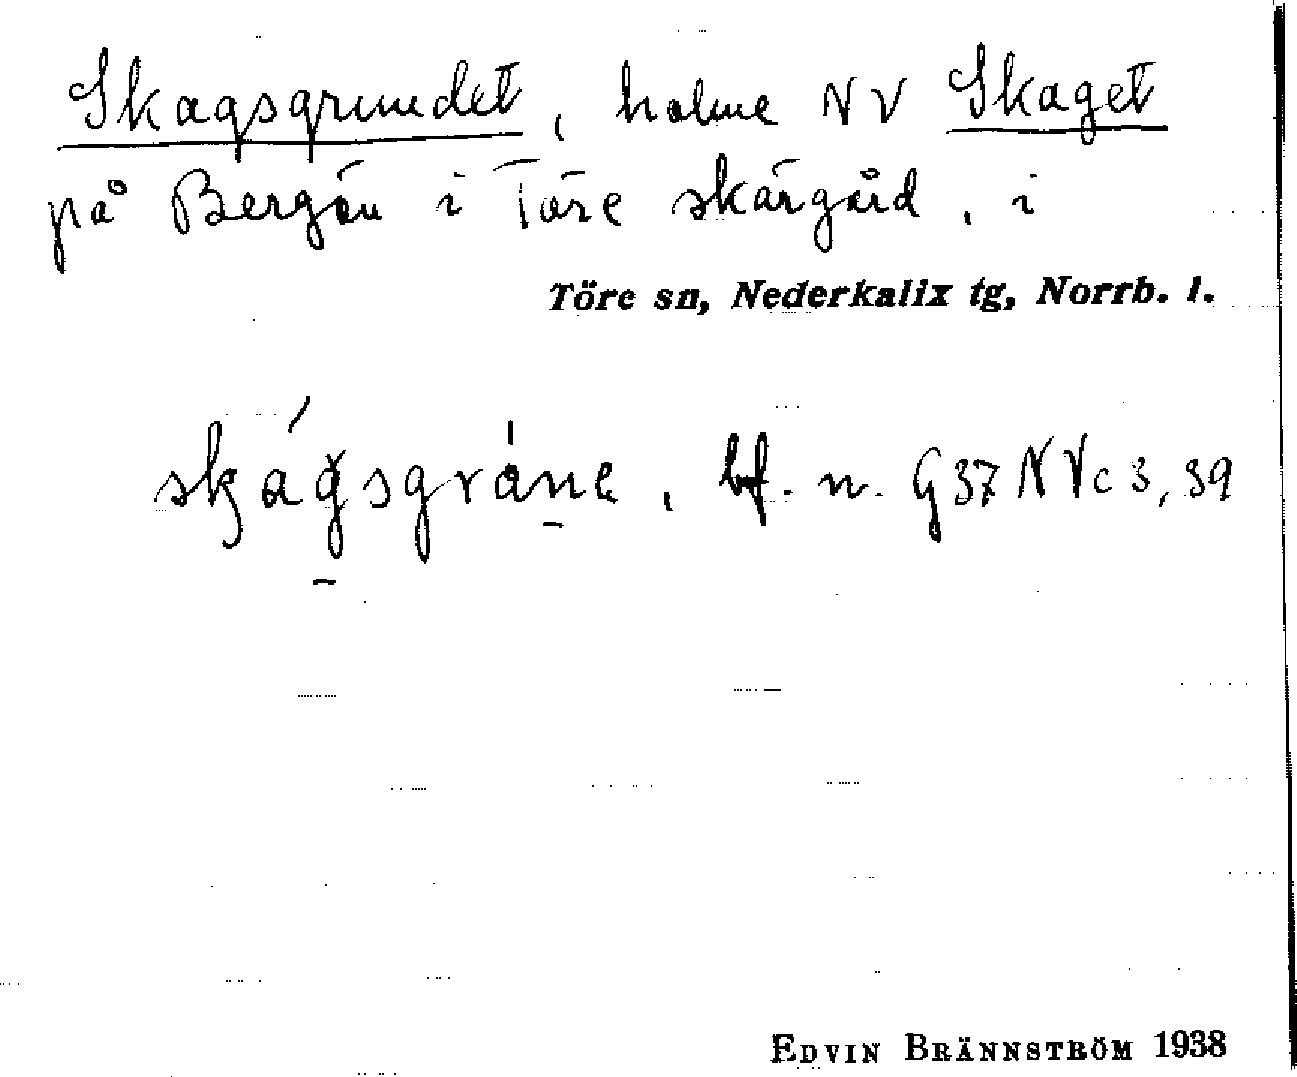 Skagsgrundet, holme NV Skaget
på Bergön i Töre skärgård, i
Töre sn, Nederkalix tg, Norrb. l.
skágsgráne, bf. n. G37NVc3,39
EDVIN BRÄNNSTRÖM 1938